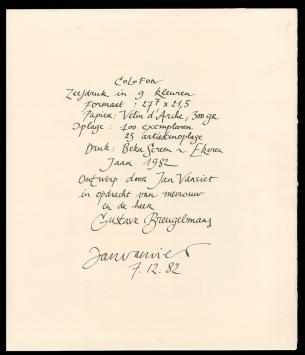 COLOFON
Zeefdruk in 9 kleuren
formaat : 27⁵ x 21,5
Papier : Velin d'Arche, 300 gr
Oplage : 100 exemplaren
25 artiestenoplage
Druk : Beka Screen ~ Ekeren
Jaar 1982
Ontwerp door Jan Vanriet
in opdracht van mevrouw
en de heer
Gustave Breugelmans
Janvanriet
7.12.82